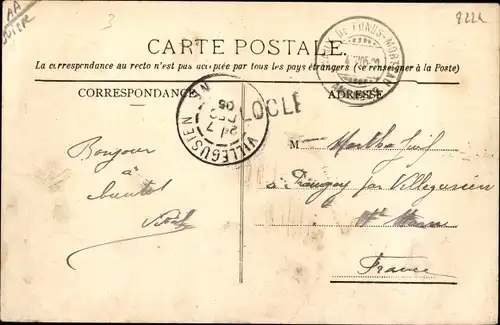 AA
9221
3
CARTE POSTALE.
La correspondance au recto n'est pas acceptée par tous les pays étrangers (Se renseigner à la Poste)
CORRESPONDANCE
ADRESSE
LOCLE
VILLEGUSIEN
7
DEC
05
DE FONDS-MORTEAU
Bonjour
à
bientot
M Martha
à par Villegusien
Hte Marne
France